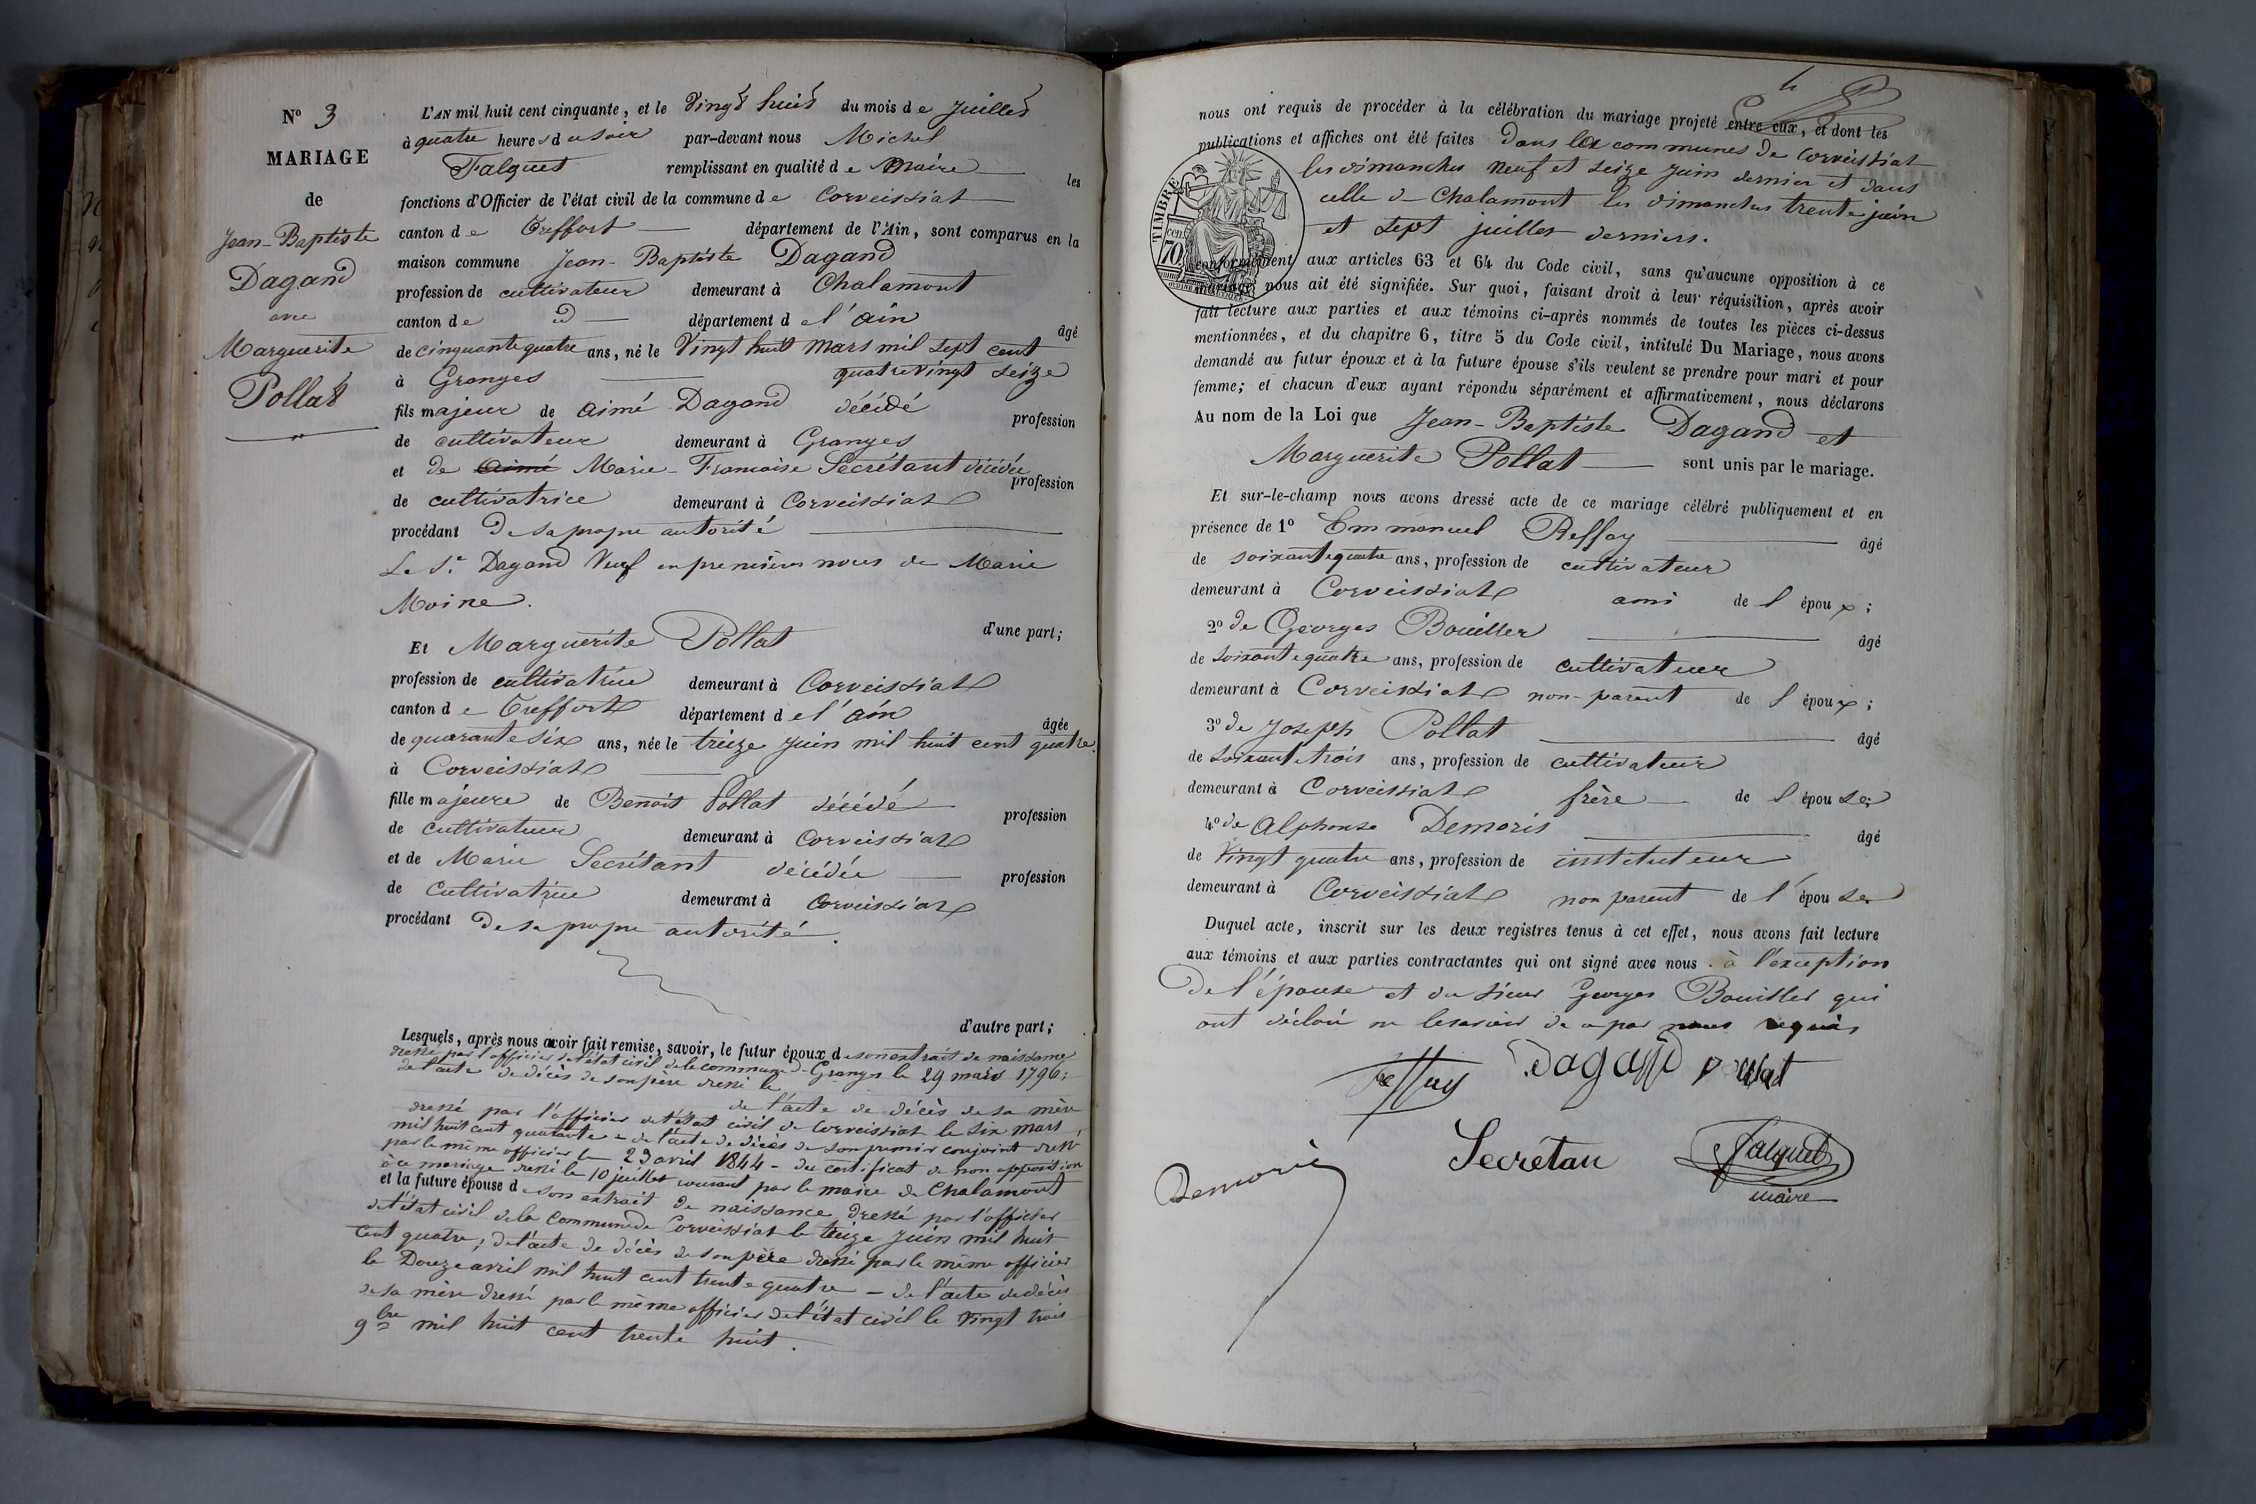 N° 3
MARIAGE
de
Jean-Baptiste
Dagand
avec
Marguerite
Pollat
L'AN mil huit cent cinquante, et le Vingt huit du mois de Juillet
à quatre heures du soir par-devant nous Michel
Falquet remplissant en qualité de Maire les
fonctions d'Officier de l'état civil de la commune de Corveissiat
canton de Treffort département de l'Ain, sont comparus en la
maison commune Jean-Baptiste Dagand
profession de cultivateur demeurant à Chalamont
canton de d département de l'ain âgé
de cinquante quatre ans, né le Vingt huit Mars mil sept cent
quatre vingt seize
à Granges
fils majeur de Aimé Dagand décédé profession
de cultivateur demeurant à Granges
et de Aimé Marie-Francoise Secrétant décédée profession
de cultivatrice demeurant à Corveissiat
procédant de sa propre autorité
Le Sr Dagand Veuf en premières noces de Marie
Moine.
d'une part;
Et Marguerite Pollat
profession de cultivatrice demeurant à Corveissiat
canton de Treffort département de l'ain âgée
de quarante six ans, née le treize Juin mil huit cent quatre
à Corveissiat
fille majeure de Benoit Pollat décédé profession
de cultivateur demeurant à Corveissiat
et de Marie Secrétant décédée profession
de Cultivatrice demeurant à Corveissiat
procédant de sa propre autorité.
d'autre part;
Lesquels, après nous avoir fait remise, savoir, le futur époux de son extrait de naissance
dressé par l'officier de l'état civil de la commune de Granges le 29 mars 1796;
de l'acte de décès de son père dressé le
de l'acte de décès de sa mère
dressé par l'officier de l'état civil de Corveissiat le six mars
mil huit cent quarante - de l'acte de décès de son premier conjoint dressé
par le même officier le 23 avril 1844 - du certificat de non opposition
à ce mariage dressé le 10 juillet courant par le maire de Chalamont
et la future épouse de son extrait de naissance dressé par l'officier
de l'état civil de la Commune de Corveissiat le treize Juin mil huit
cent quatre; de l'acte de décès de son père dressé par le même officier
le Douze avril mil huit cent trente quatre - de l'acte de décès
de sa mère dressé par le même officier de l'état civil le vingt trois
9bre mil huit cent trente huit.
4
nous ont requis de procéder à la célébration du mariage projeté entre eux, et dont les
publications et affiches ont été faites Dans les communes de Corveissiat
les dimanches neuf et seize juin dernier et dans
celle de Chalamont les dimanches trente juin
et sept juillet derniers.
TIMBRE
70 cent
conformément aux articles 63 et 64 du Code civil, sans qu'aucune opposition à ce
mariage nous ait été signifiée. Sur quoi, faisant droit à leur réquisition, après avoir
fait lecture aux parties et aux témoins ci-après nommés de toutes les pièces ci-dessus
mentionnées, et du chapitre 6, titre 5 du Code civil, intitulé Du Mariage, nous avons
demandé au futur époux et à la future épouse s'ils veulent se prendre pour mari et pour
femme; et chacun d'eux ayant répondu séparément et affirmativement, nous déclarons
Au nom de la Loi que Jean-Baptiste Dagand et
Marguerite Pollat sont unis par le mariage.
Et sur-le-champ nous avons dressé acte de ce mariage célébré publiquement et en
présence de 1° Emmanuel Reffay âgé
de soixante quatre ans, profession de cultivateur
demeurant à Corveissiat ami de l époux;
2° de Georges Bouiller âgé
de soixante quatre ans, profession de cultivateur
demeurant à Corveissiat non-parent de l époux;
3° de Joseph Pollat âgé
de soixante trois ans, profession de cultivateur
demeurant à Corveissiat frère de l épouse;
4° de Alphonse Demoris âgé
de Vingt quatre ans, profession de instituteur
demeurant à Corveissiat non parent de l'épouse
Duquel acte, inscrit sur les deux registres tenus à cet effet, nous avons fait lecture
aux témoins et aux parties contractantes qui ont signé avec nous à l'exception
de l'épouse et du sieur Georges Bouiller qui
ont déclaré ne le savoir de ce par nous requis
Reffay Dagand Pollat
Demoris Secrétan Falquet
maire